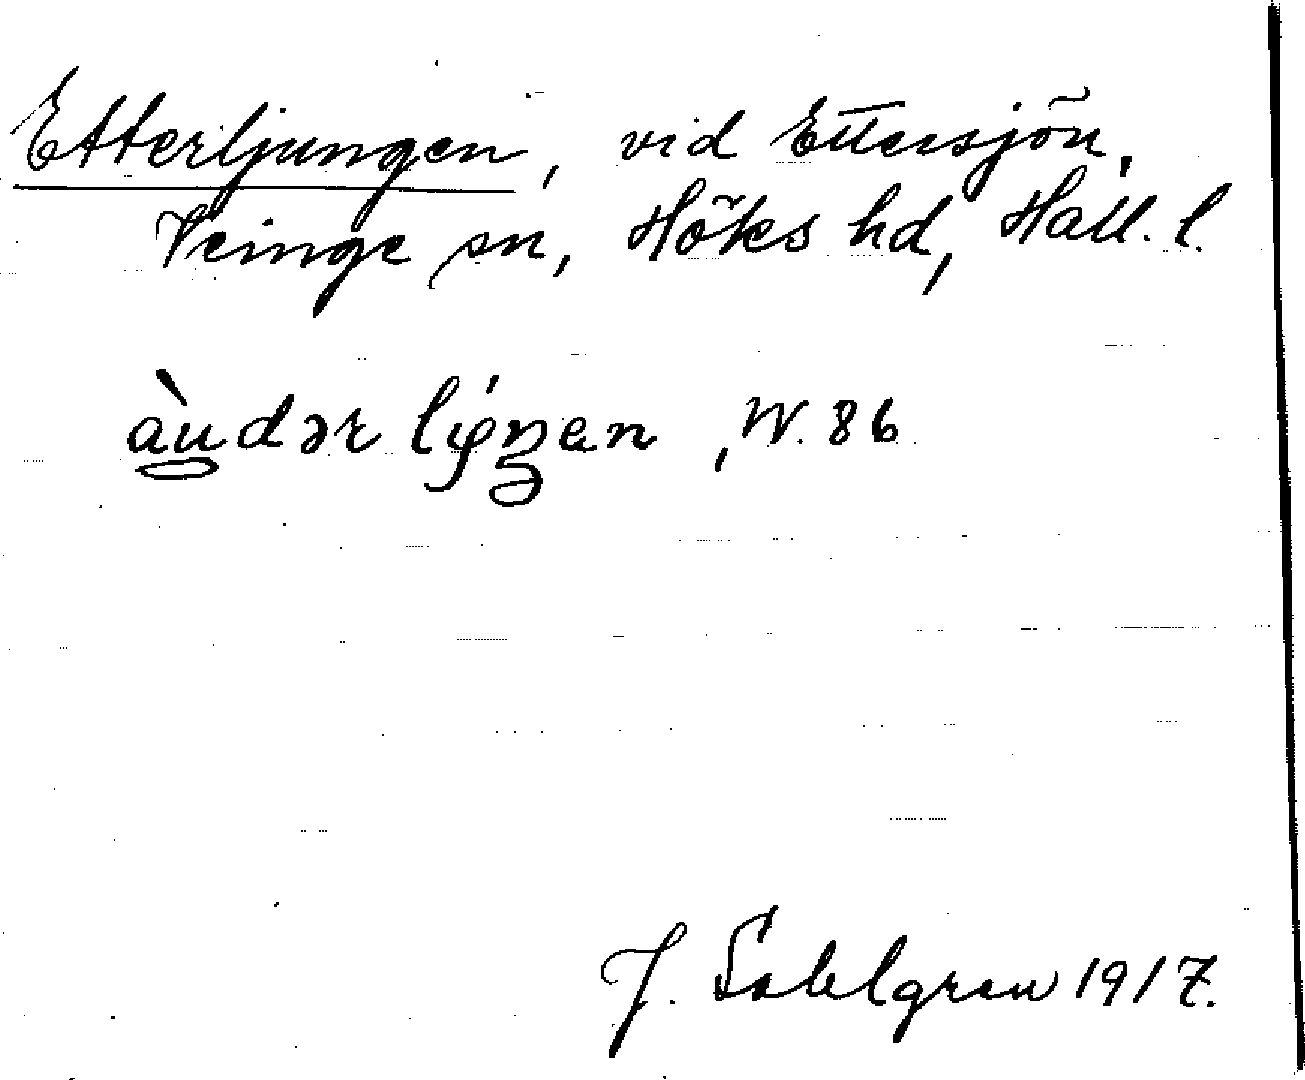 Etterljungen, vid Ettersjön,
Veinge sn, Höks hd, Hall. l.
àudər , W. 86
J. Sahlgren 1917.